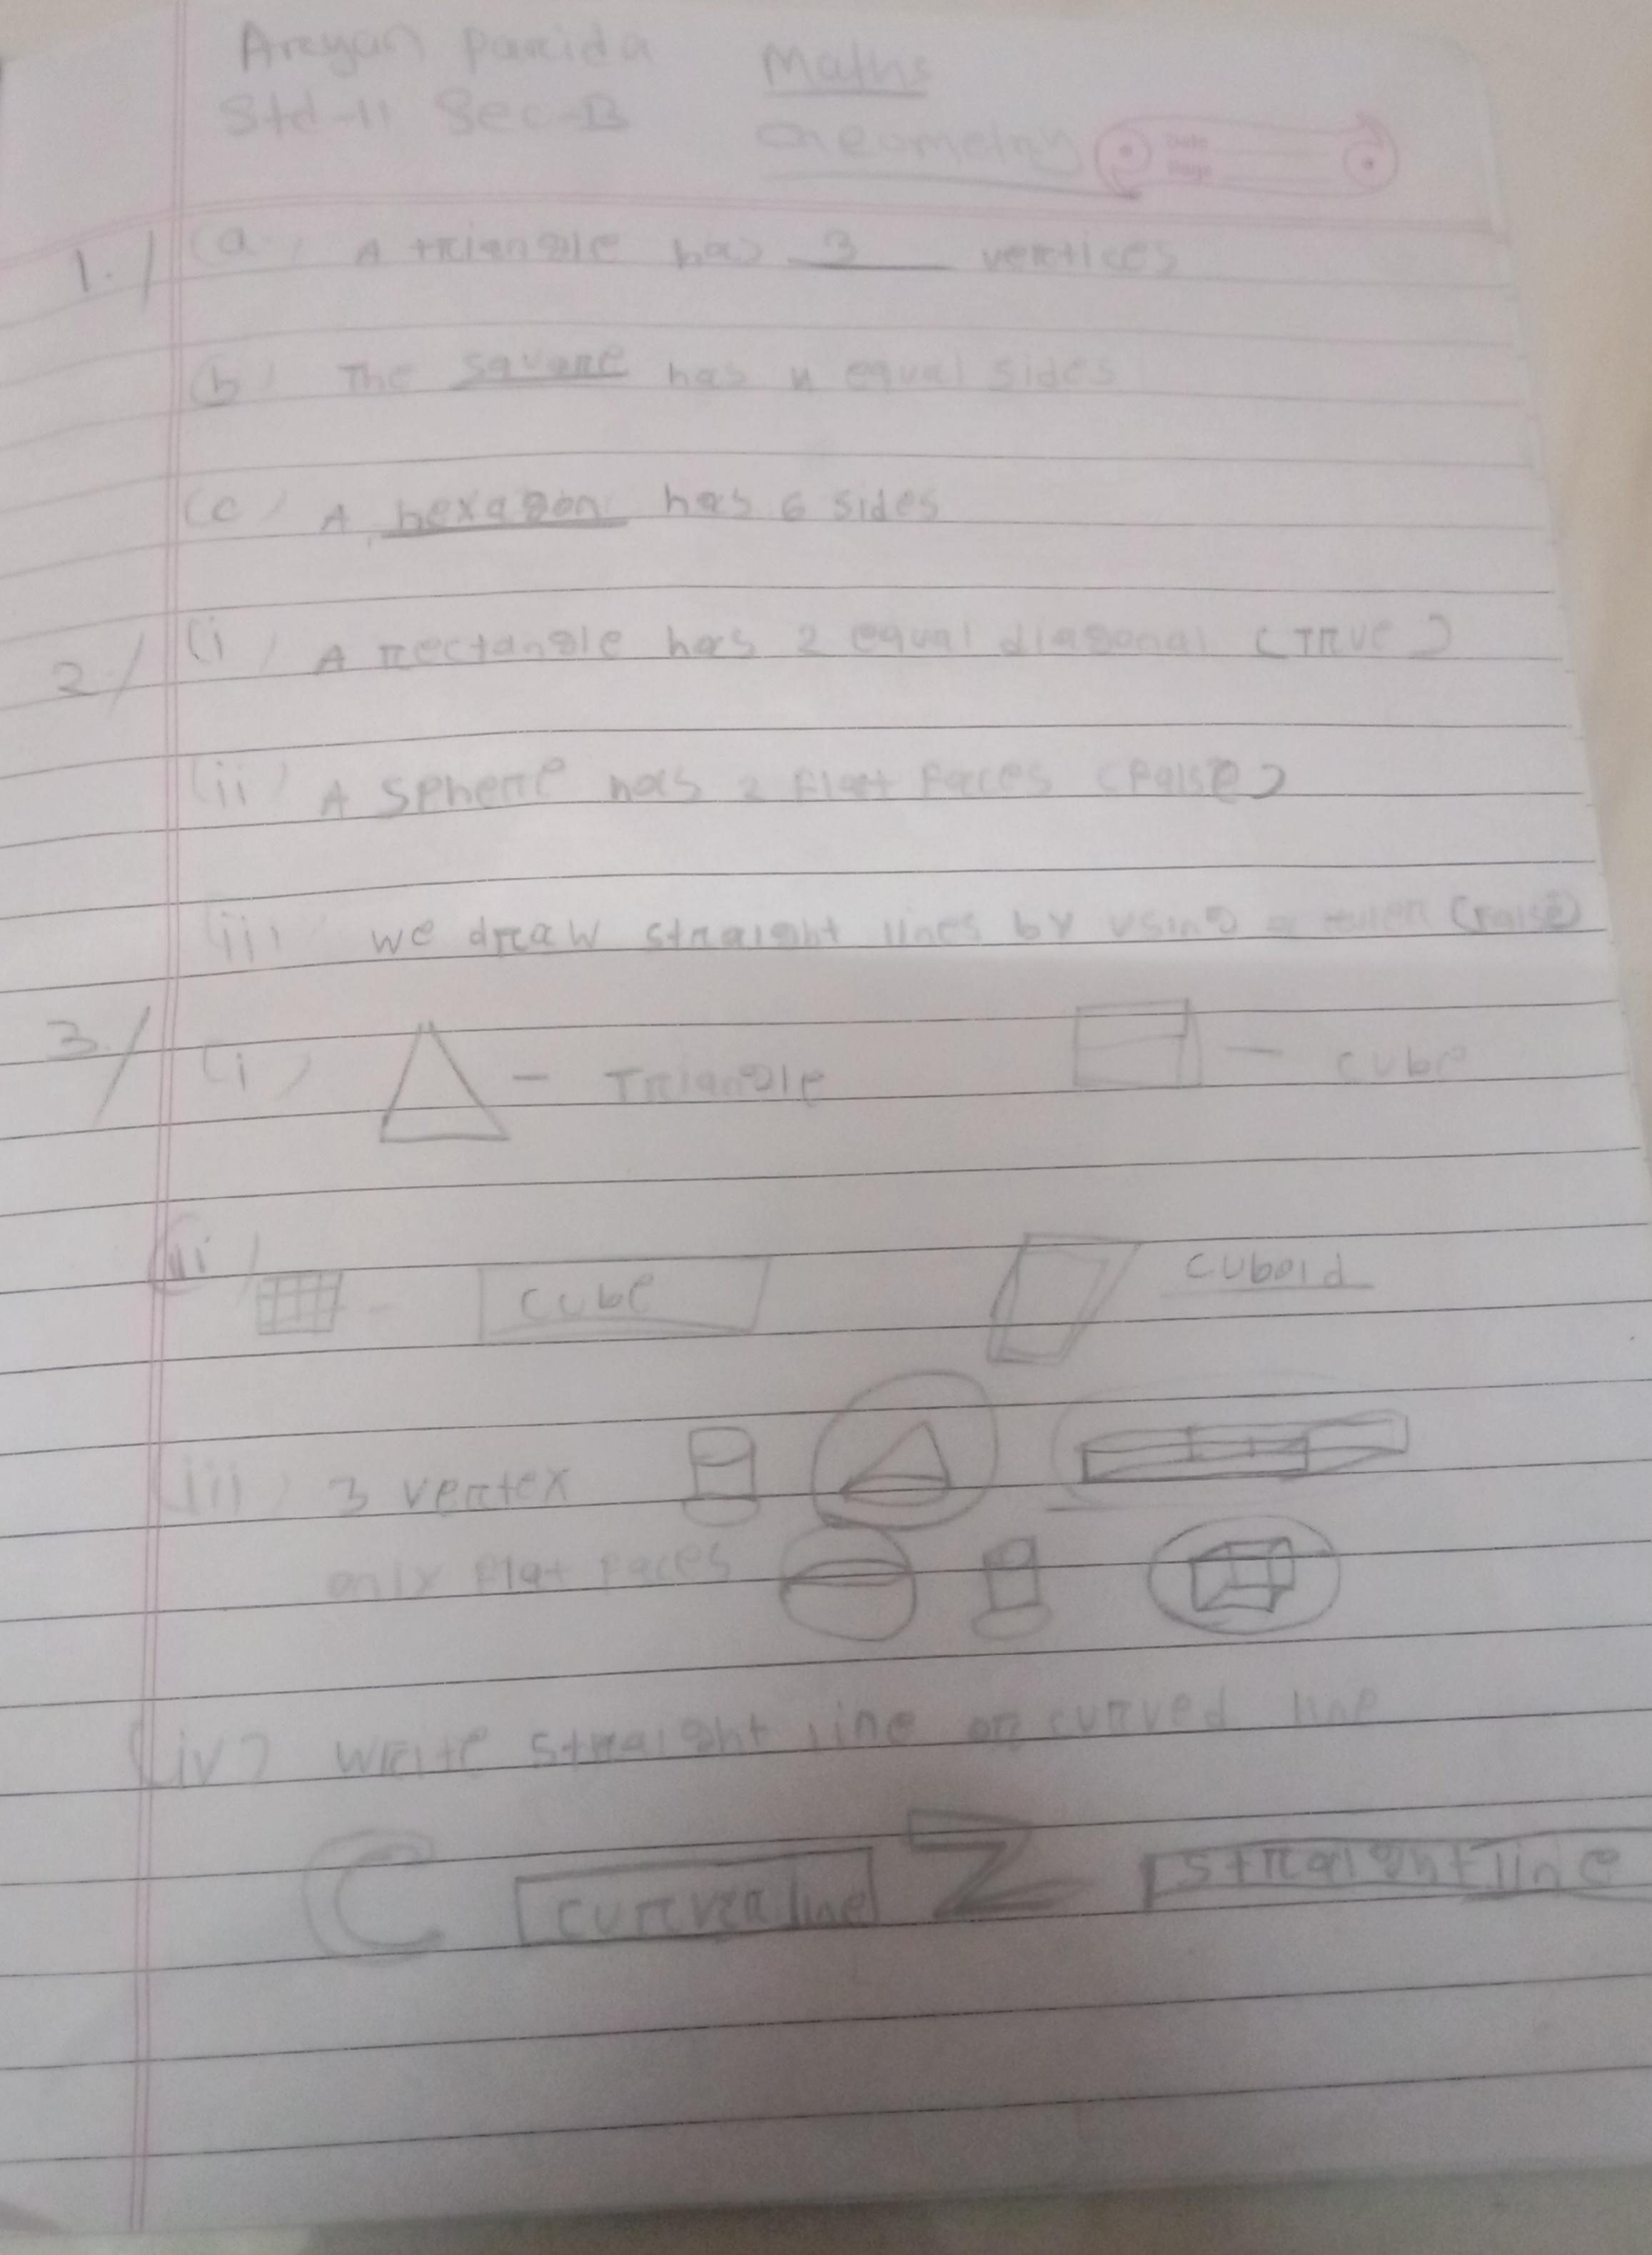 Areyan Parida Maths
Std-II Sec-B Geometry
Date
Page
1./ (a) A triangle has 3 vertices
(b) The square has 4 equal sides
(c) A hexagon has 6 sides
2./ (i) A rectangle has 2 equal diagonal (True)
(ii) A sphere has 2 flat faces (false)
(iii) we draw straight lines by using a ruler (false)
3./ (i) - Triangle - cube
(ii) - cube cuboid
iii) 3 vertex
only flat faces
(iv) write straight line or curved line
C curved line Z straight line